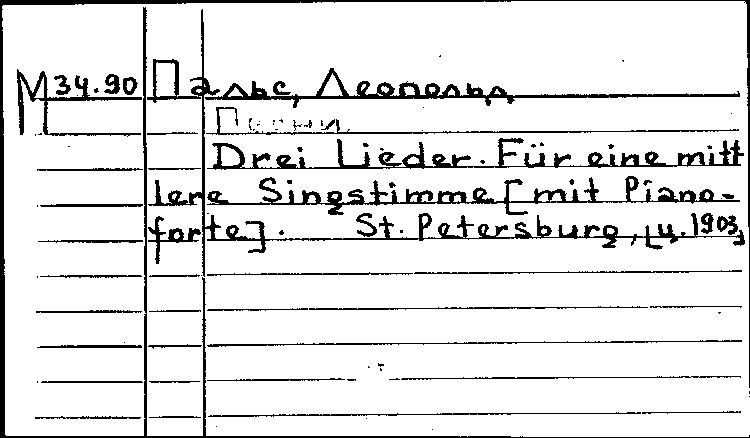 М 34.90 Пальс, Леопольд.
Песни.
Drei Lieder. Für eine mitt
lere Singstimme [mit Piano-
forte]. St. Petersburg, [ц. 1903]